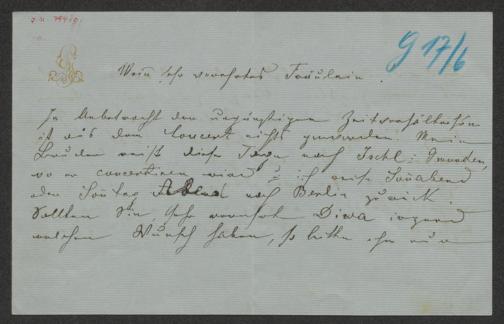 J.N. 
G 17/6
Mein sehr verehrtes Fräulein.
In Anbetracht der ungünstigen Zeitverhältnisse
ist aus dem Concert nichts geworden. Mein
Bruder reist diese Tage nach Ischl & Gmunden,
wo er concertiren wird & ich reise Sonnabend
oder Sonntag Abend nach Berlin zurück.
Sollten Sie, sehr verehrte Diva irgend
welchen Wunsch haben, so bitte ich nur